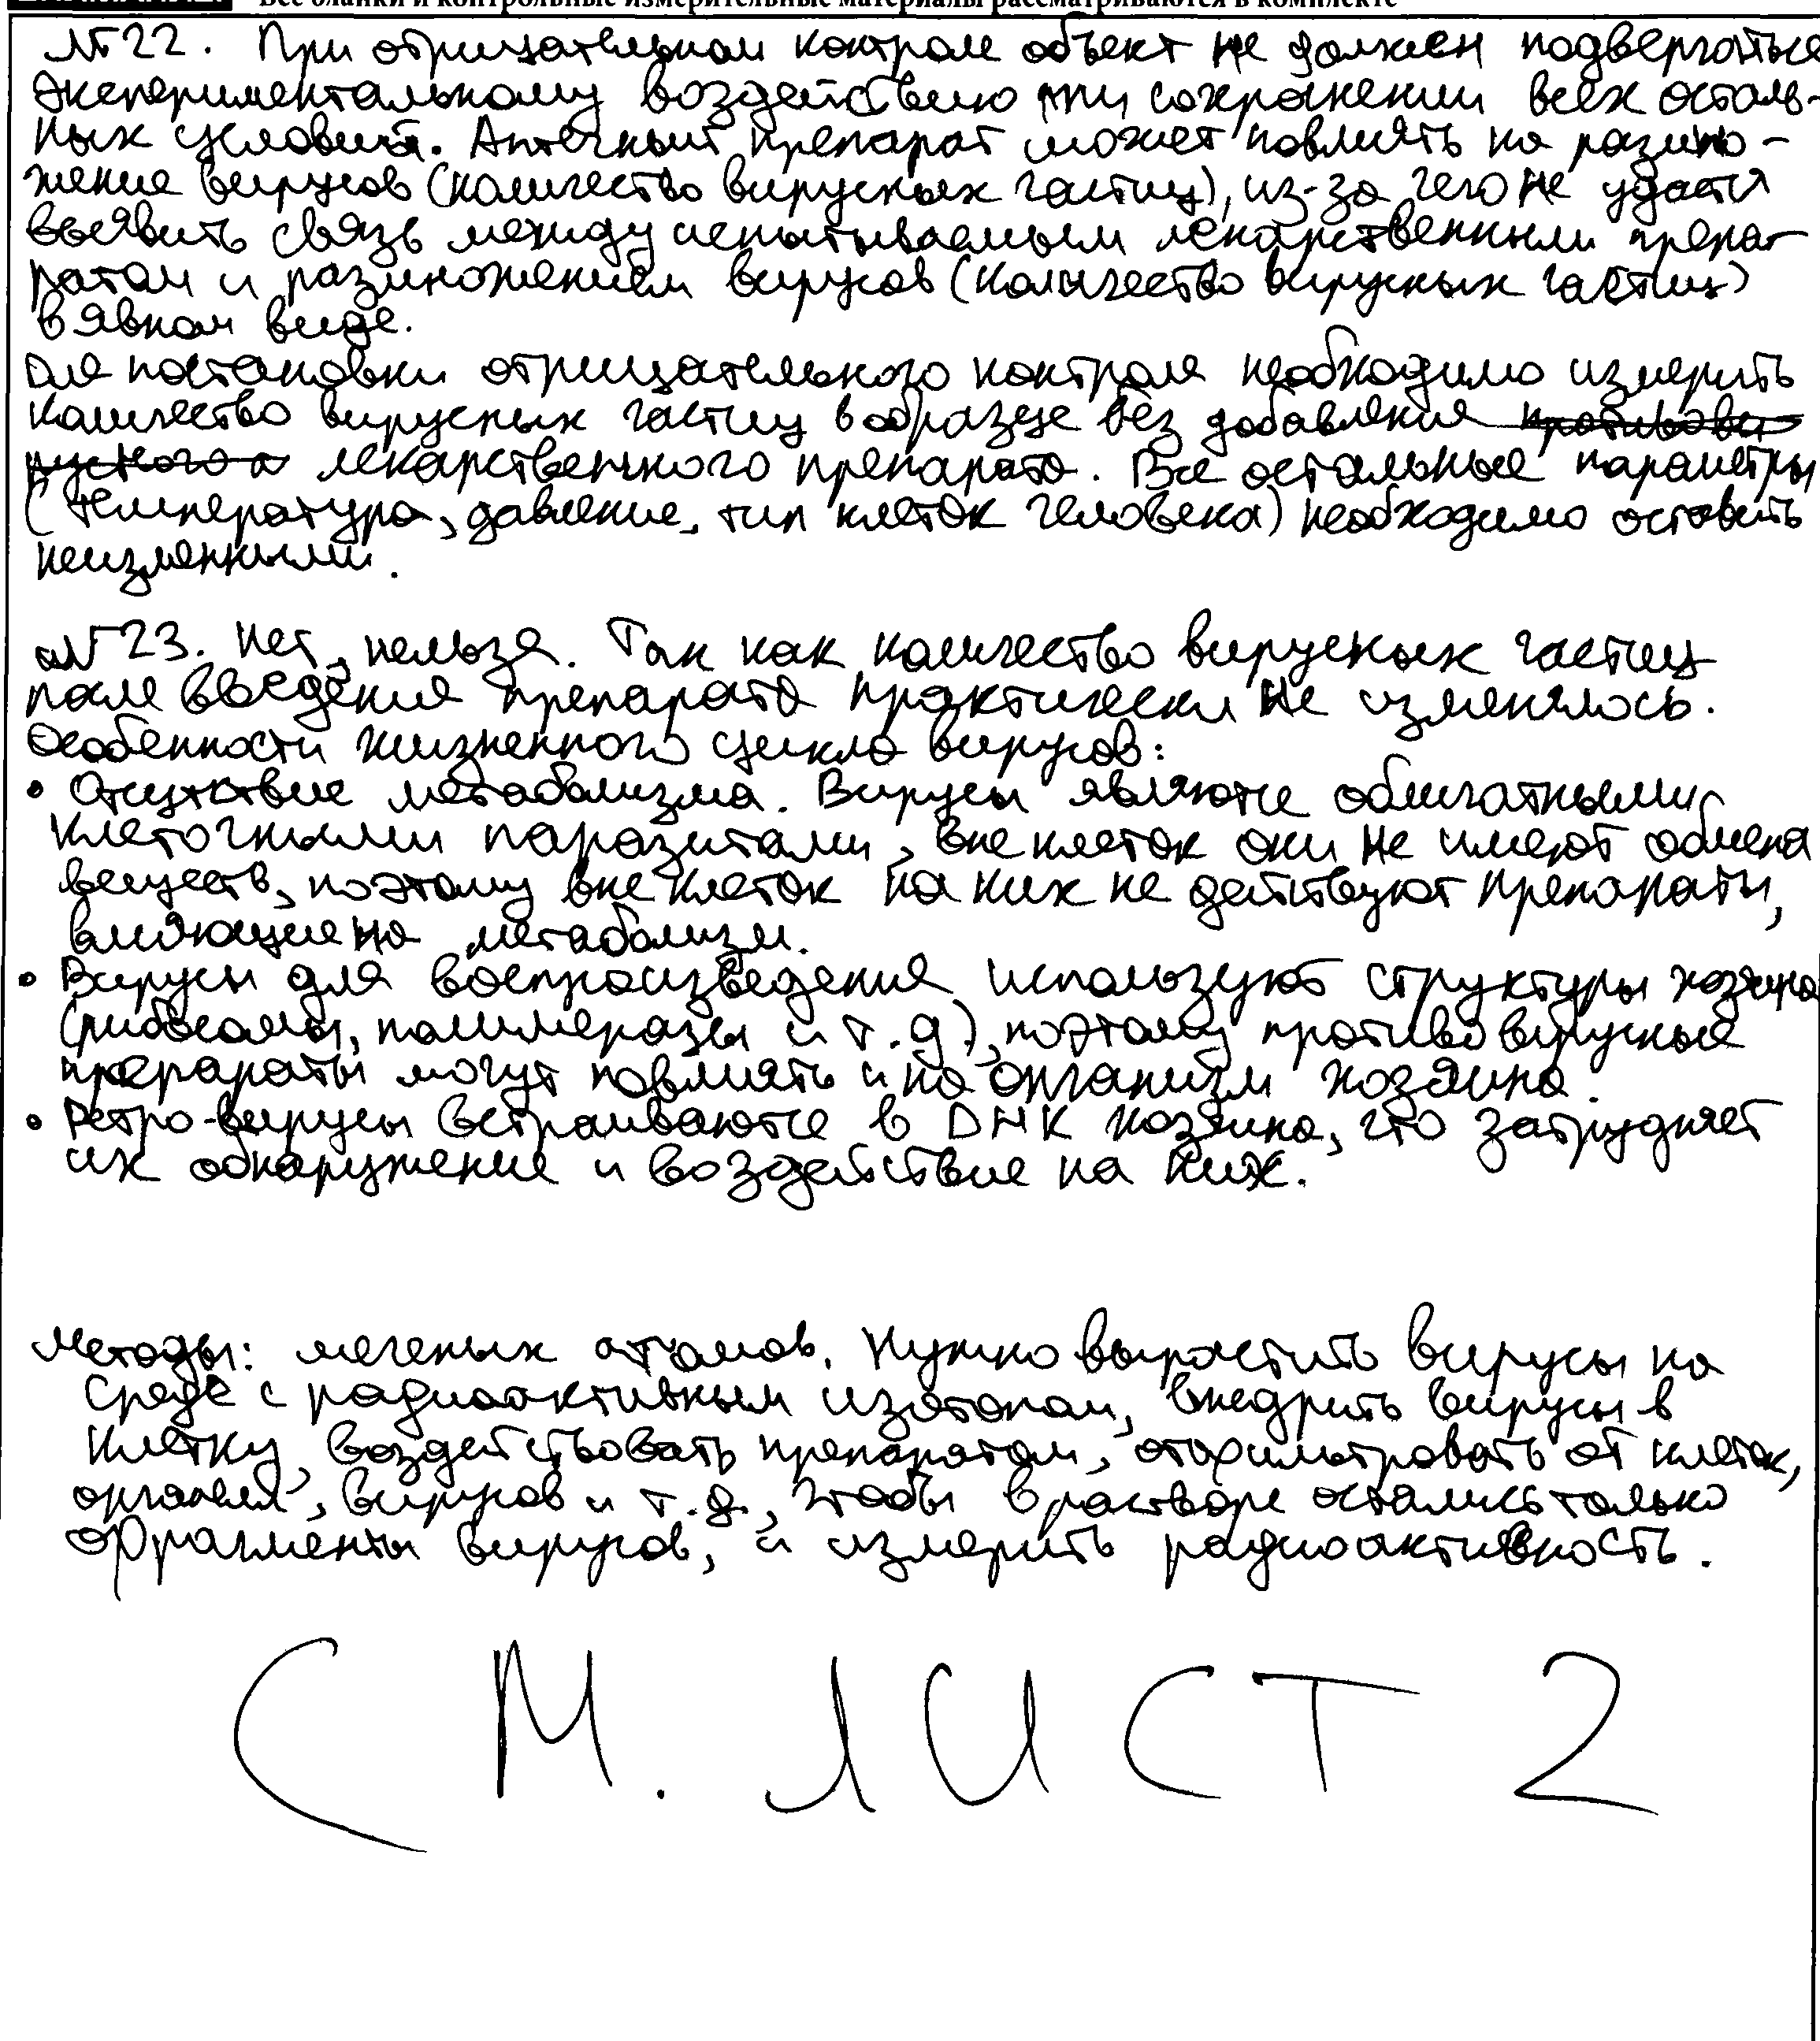 Все бланки и контрольные измерительные материалы рассматриваются в комплекте
№22. При отрицательном контроле объект не должен подвергаться
экспериментальному воздействию при сохранении всех осталь-
ных условий. Аптечный препарат может повлиять на размно-
жение вирусов (количество вирусных частиц), из-за чего не удастся
выявить связь между испытываемым лекарственным препа-
ратом и размножением вирусов (количество вирусных частиц)
в явном виде.
Для постановки отрицательного контроля необходимо измерить
количество вирусных частиц в образце без добавления
лекарственного препарата. Все остальные параметры
(температура, давление, тип клеток человека) необходимо оставить
неизменными.
№23. Нет, нельзя. Так как количество вирусных частиц
после введения препарата практически не изменялось.
Особенности жизненного цикла вирусов:
• Отсутствие метаболизма. Вирусы являются облигатными
клеточными паразитами, вне клеток они не имеют обмена
веществ, поэтому вне клеток на них не действуют препараты,
влияющие на метаболизм.
• Вирусы для воспроизведения используют структуры хозяина
(рибосомы, полимеразы и т.д), поэтому противовирусные
препараты могут повлиять и на организм хозяина.
• Ретро-вирусы встраиваются в ДНК хозяина, что затрудняет
их обнаружение и воздействие на них.
Методы: меченых атомов. Нужно вырастить вирусы на
среде с радиоактивным изотопом, внедрить вирусы в
клетку, воздействовать препаратом, отфильтровать от клеток,
органелл, вирусов и т.д., чтобы в растворе остались только
фрагменты вирусов, и измерить радиоактивность.
СМ. ЛИСТ 2